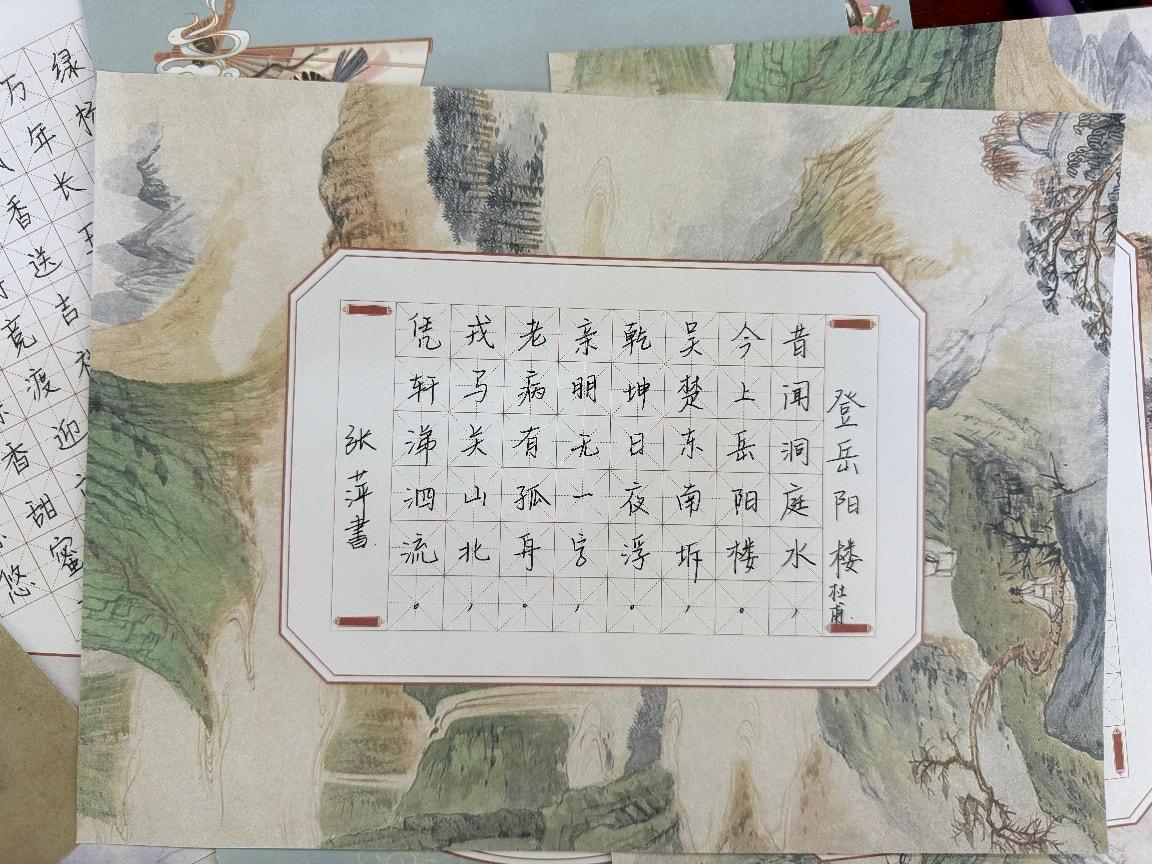 登岳阳楼 杜甫
昔闻洞庭水，
今上岳阳楼。
吴楚东南坼，
乾坤日夜浮。
亲朋无一字，
老病有孤舟。
戎马关山北，
凭轩涕泗流。
张萍書
绿杨
万年长
香送吉
竞渡迎
香甜蜜
悠